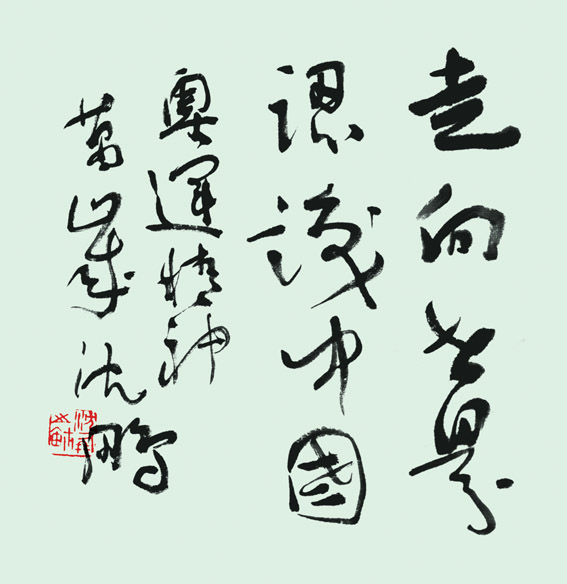 走向世界
認識中國
奧運精神
萬歲沈鵬